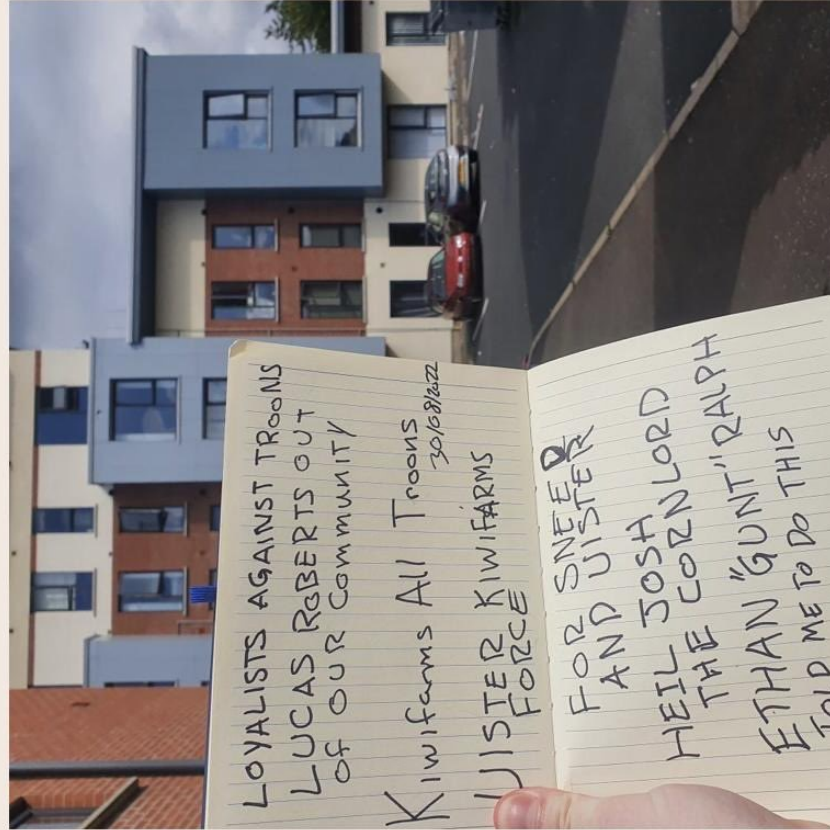 LOYALISTS AGAINST TROONS
LUCAS ROBERTS OUT
OF OUR COMMUNITY
Kiwifarms All Troons
30/08/2022
UISTER KIWIFARMS
FORCE
FOR SNEED
AND UISTER
HEIL JOSH
THE CORNLORD
ETHAN "GUNT" RALPH
TOLD ME TO DO THIS